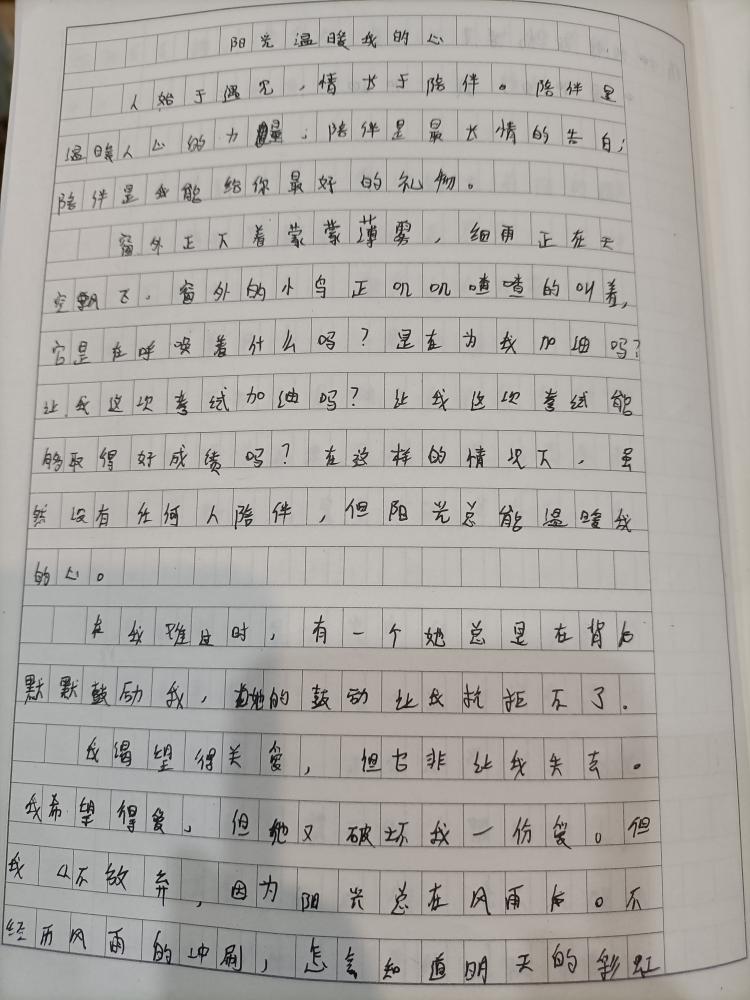 阳光温暖我的心
人始于遇见，情长于陪伴。陪伴是
温暖人心的力量；陪伴是最长情的告白；
陪伴是我能给你最好的礼物。
窗外正下着蒙蒙薄雾，细雨正在天
空飘飞，窗外的小鸟正叽叽喳喳的叫着，
它是在呼唤着什么吗？是在为我加油吗？
让我这次考试加油吗？让我这次考试能
够取得好成绩吗？在这样的情况下，虽
然没有任何人陪伴，但阳光总能温暖我
的心。
在我难过时，有一个她总是在背后
默默鼓励我，她的鼓动让我抗拒不了.
我渴望得关爱，但它非让我失去。
我希望得爱，但她又破坏我一份爱。但
我从不放弃，因为阳光总在风雨后。不
经历风雨的冲刷，怎么知道明天的彩虹